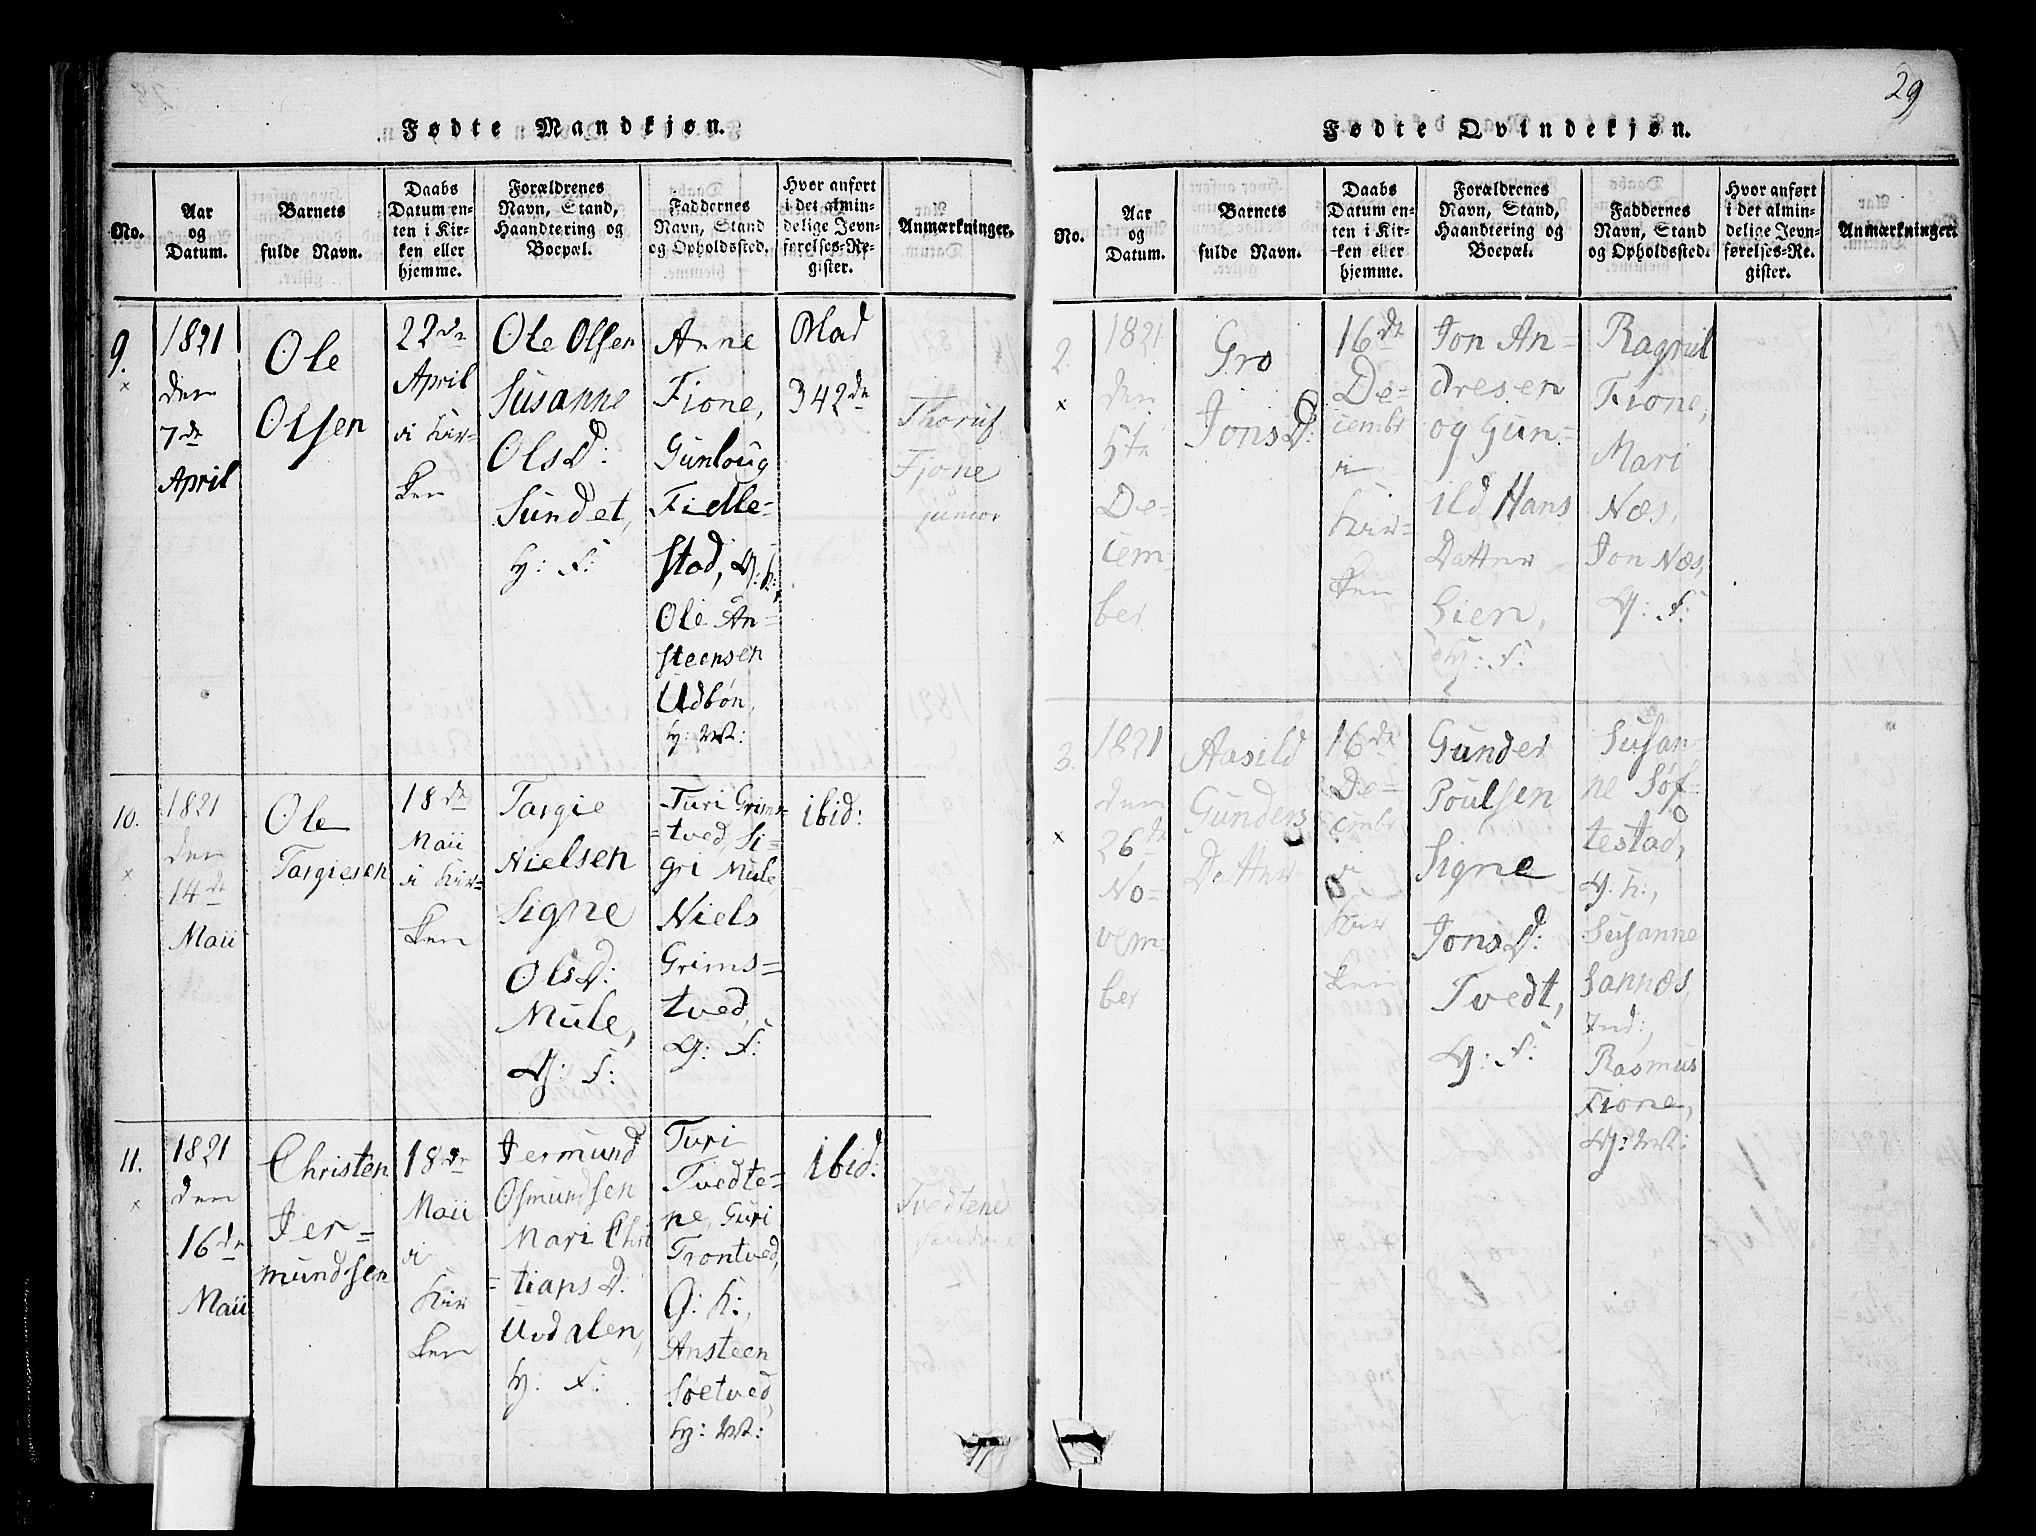 Fødte Mandkjøn.
No.
Aar
og
Datum.
Barnets
fulde Navn.
Daabs
Datum en-
ten i Kir-
ken eller
hjemme.
Forældrenes
Navn, Stand,
Haandtering og
Boepæl.
Faddernes
Navn, Stand
og Opholdssted.
Hvor anført
i det almin-
delige Jevn-
førelses-Re-
gister.
Anmærkninger.
9.
×
1821
den
7de
April
Ole
Olsen
22de
April
i Kir-
ken
Ole Olsen
Susanne
OlsD:
Sundet,
Anne
Fione,
Gunloug
Fielle-
stad, G: K:,
Ole An-
steensen
Udbøn,
Blad
342de
Fjone
junior
10.
×
1821
den
14de
Maii
Ole
Targiesen
18de
Maii
i Kir-
ken
Targie
Nielsen
Signe
OlsD:
Mule,
G: F:
Turi Grims-
=tved, Si-
gri Mule
Niels
Grims=
tved,
G: F:
ibid:
11.
×
1821
den
16de
Maii
Christen
Jer=
mundsen
18de
Maii
i
Kir
ken
Jermund
Osmundsen
Mari Chri
=tians D:
Uvdalen,
Turi
Tvedte=
ne, Guri
Trontved,
G: K:,
Ansteen
Søetved,
ibid:
Tvedtene
29
Fødte Qvindekjøn.
No.
Aar
og
Datum.
Barnets
fulde Navn.
Daabs
Datum en-
ten i Kir-
ken eller
hjemme.
Forældrenes
Navn, Stand,
Haandtering og
Boepæl.
Faddernes
Navn, Stand
og Opholdssted.
Hvor anført
i det almin-
delige Jevn-
førelses-Re-
gister.
Anmærkninger.
2.
×
1821
den
5te
De=
cem
ber
Gro
JonsD:
16de
De=
cembr
i
Kir-
ken
Jon An=
dresen
og Gun=
ild Hans
Datter
Lien,
Ragnil
Fione,
Mari
Næs,
Jon Næs,
G: F:
3.
×
1821
den
26de
No=
vem=
ber
Aasild
Gunders
Datter
16de
De=
cembr
i
Kir
ken
Gunder
Poulsen
Signe
JonsD:
Tvedt,
G: F:
Susan
ne Søf=
testad,
G: K:,
Susanne
Sannes,
Ind:,
Rasmus
Fione,